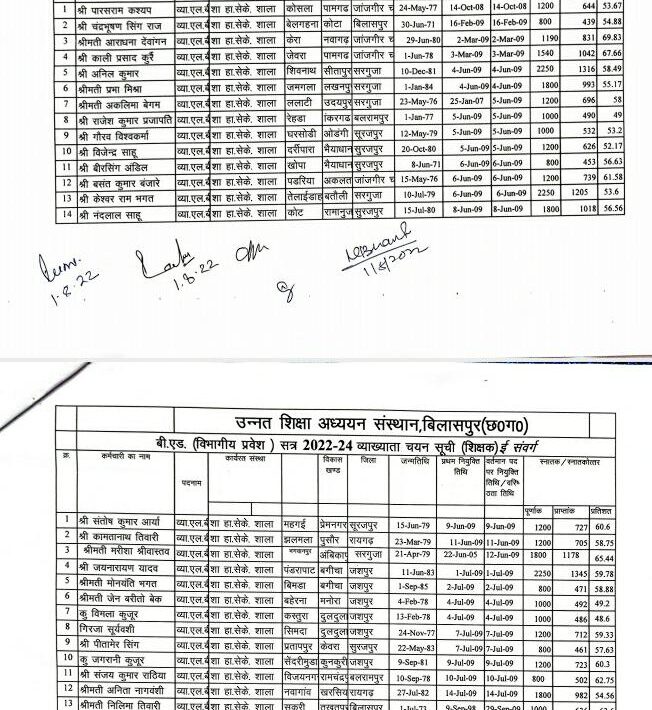 1 श्री पारसराम कश्यप व्या.एल.बी शा हा.सेके. शाला कोसला पामगढ जांजगीर च 24-May-77 14-Oct-08 14-Oct-08 1200 644 53.67
2 श्री चंद्रभूषण सिंग राज व्या.एल.बी शा हा.सेके. शाला बेलगहना कोटा बिलासपुर 30-Jun-71 16-Feb-09 16-Feb-09 800 439 54.88
3 श्रीमती आराधना देवांगन व्या.एल.बी शा हा.सेके. शाला केरा नवागढ़ जांजगीर च 29-Jun-80 2-Mar-09 2-Mar-09 1190 831 69.83
4 श्री काली प्रसाद कुर्रे व्या.एल.बी शा हा.सेके. शाला जेवरा पामगढ जांजगीर च 1-Jun-78 3-Mar-09 3-Mar-09 1540 1042 67.66
5 श्री अनिल कुमार व्या.एल.बी शा हा.सेके. शाला शिवनाथ सीतापुर सरगुजा 10-Dec-81 4-Jun-09 4-Jun-09 2250 1316 58.49
6 श्रीमती प्रभा मिश्रा व्या.एल.बी शा हा.सेके. शाला जमगला लखनपु सरगुजा 1-Jan-84 4-Jun-09 4-Jun-09 1800 993 55.17
7 श्रीमती अकलिमा बेगम व्या.एल.बी शा हा.सेके. शाला ललाटी उदयपुर सरगुजा 23-May-76 25-Jan-07 5-Jun-09 1200 696 58
8 श्री राजेश कुमार प्रजापति व्या.एल.बी शा हा.सेके. शाला रेहडा शंकरगढ बलरामपुर 1-Jan-77 5-Jun-09 5-Jun-09 1000 490 49
9 श्री गौरव विश्वकर्मा व्या.एल.बी शा हा.सेके. शाला घरसोडी ओडंगी सूरजपुर 12-May-79 5-Jun-09 5-Jun-09 1000 532 53.2
10 श्री विजेन्द्र साहू व्या.एल.बी शा हा.सेके. शाला दर्रीपारा भैयाथान सुरजपुर 20-Oct-80 5-Jun-09 5-Jun-09 1200 626 52.17
11 श्री बीरसिंग अंडिल व्या.एल.बी शा हा.सेके. शाला खोपा भैयाथान सुरजपुर 8-Jun-71 6-Jun-09 6-Jun-09 800 453 56.63
12 श्री बसंत कुमार बंजारे व्या.एल.बी शा हा.सेके. शाला पडरिया अकलत जांजगीर च 15-May-76 6-Jun-09 6-Jun-09 1200 739 61.58
13 श्री केश्वर राम भगत व्या.एल.बी शा हा.सेके. शाला तेलाईडाह बतौली सरगुजा 10-Jul-79 6-Jun-09 6-Jun-09 2250 1205 53.6
14 श्री नंदलाल साहू व्या.एल.बी शा हा.सेके. शाला कोट रामानुज सुरजपुर 15-Jul-80 8-Jun-09 8-Jun-09 1800 1018 56.56
1.8.22 1.8.22 11/8/2022
उन्नत शिक्षा अध्ययन संस्थान,बिलासपुर(छ0ग0)
बी.एड. (विभागीय प्रवेश ) सत्र 2022-24 व्याख्याता चयन सूची (शिक्षक) ई संवर्ग
क्र. कर्मचारी का नाम पदनाम कार्यरत संस्था विकास खण्ड जिला जन्मतिथि प्रथम नियुक्ति तिथि वर्तमान पद पर नियुक्ति तिथि/वरिष्ठता तिथि स्नातक /स्नातकोत्तर
पूर्णांक प्राप्तांक प्रतिशत
1 श्री संतोष कुमार आर्या व्या.एल.बी शा हा.सेके. शाला महगई प्रेमनगर सूरजपुर 15-Jun-79 9-Jun-09 9-Jun-09 1200 727 60.6
2 श्री कामतानाथ तिवारी व्या.एल.बी शा हा.सेके. शाला झलमला पुसौर रायगढ़ 23-Mar-79 11-Jun-09 11-Jun-09 1200 705 58.75
3 श्रीमती मरोशा श्रीवास्तव व्या.एल.बी शा हा.सेके. शाला अंबिकापु सरगुजा 21-Apr-79 22-Jun-05 12-Jun-09 1800 1178 65.44
4 श्री जयनारायण यादव व्या.एल.बी शा हा.सेके. शाला पंडरापाट बगीचा जशपुर 11-Jun-83 1-Jul-09 1-Jul-09 2250 1345 59.78
5 श्रीमती मोनयंति भगत व्या.एल.बी शा हा.सेके. शाला बिमडा बगीचा जशपुर 1-Sep-85 2-Jul-09 2-Jul-09 800 471 58.88
6 श्रीमती जेन बरीतो बेक व्या.एल.बी शा हा.सेके. शाला बहेरना मनोरा जशपुर 4-Feb-78 4-Jul-09 4-Jul-09 1000 492 49.2
7 कु विमला कुजूर व्या.एल.बी शा हा.सेके. शाला कस्तुरा दुलदुला जशपुर 13-Feb-78 4-Jul-09 4-Jul-09 1000 486 48.6
8 गिरजा सूर्यवंशी व्या.एल.बी शा हा.सेके. शाला सिमदा दुलदुला जशपुर 24-Nov-77 7-Jul-09 7-Jul-09 1200 712 59.33
9 श्री पीतामेर सिंग व्या.एल.बी शा हा.सेके. शाला प्रतापपुर केवरा सुरजपुर 22-May-83 7-Jul-09 7-Jul-09 800 461 57.63
10 कु जगरानी कुजूर व्या.एल.बी शा हा.सेके. शाला सेंदरीमुडा कुनकुरी जशपुर 9-Sep-81 9-Jul-09 9-Jul-09 1200 723 60.3
11 श्री संजय कुमार राठिया व्या.एल.बी शा हा.सेके. शाला विजयनग रामचंद्रपु बलरामपुर 10-Sep-78 10-Jul-09 10-Jul-09 800 502 62.75
12 श्रीमती अनिता नागवंशी व्या.एल.बी शा हा.सेके. शाला नवागांव खरसिय रायगढ़ 27-Jul-82 14-Jul-09 14-Jul-09 1800 982 54.56
13 श्रीमती निलिमा तिवारी व्या.एल.बी शा हा.सेके. शाला सकरी तखतपु बिलासपुर 1-Jul-73 9-Sep-98